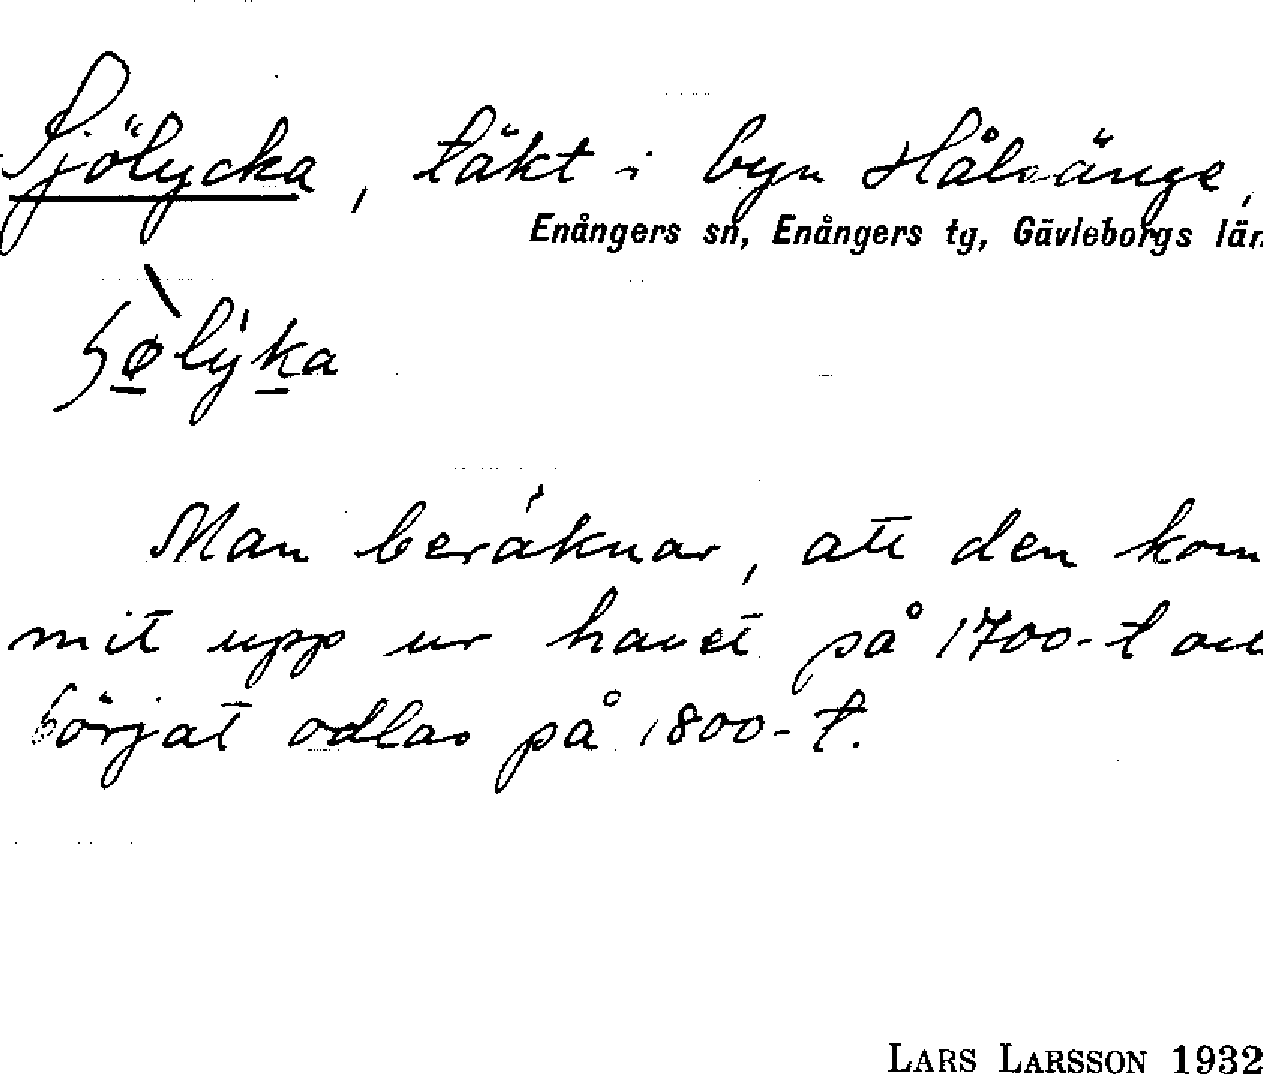 Sjölycka, täkt i byn Hålsänge,
Enångers sn, Enångers tg, Gävleborgs län
Man beräknar, att den kom
mit upp ur havet på 1700-t och
börjat odlas på 1800-t.
LARS LARSSON 1932